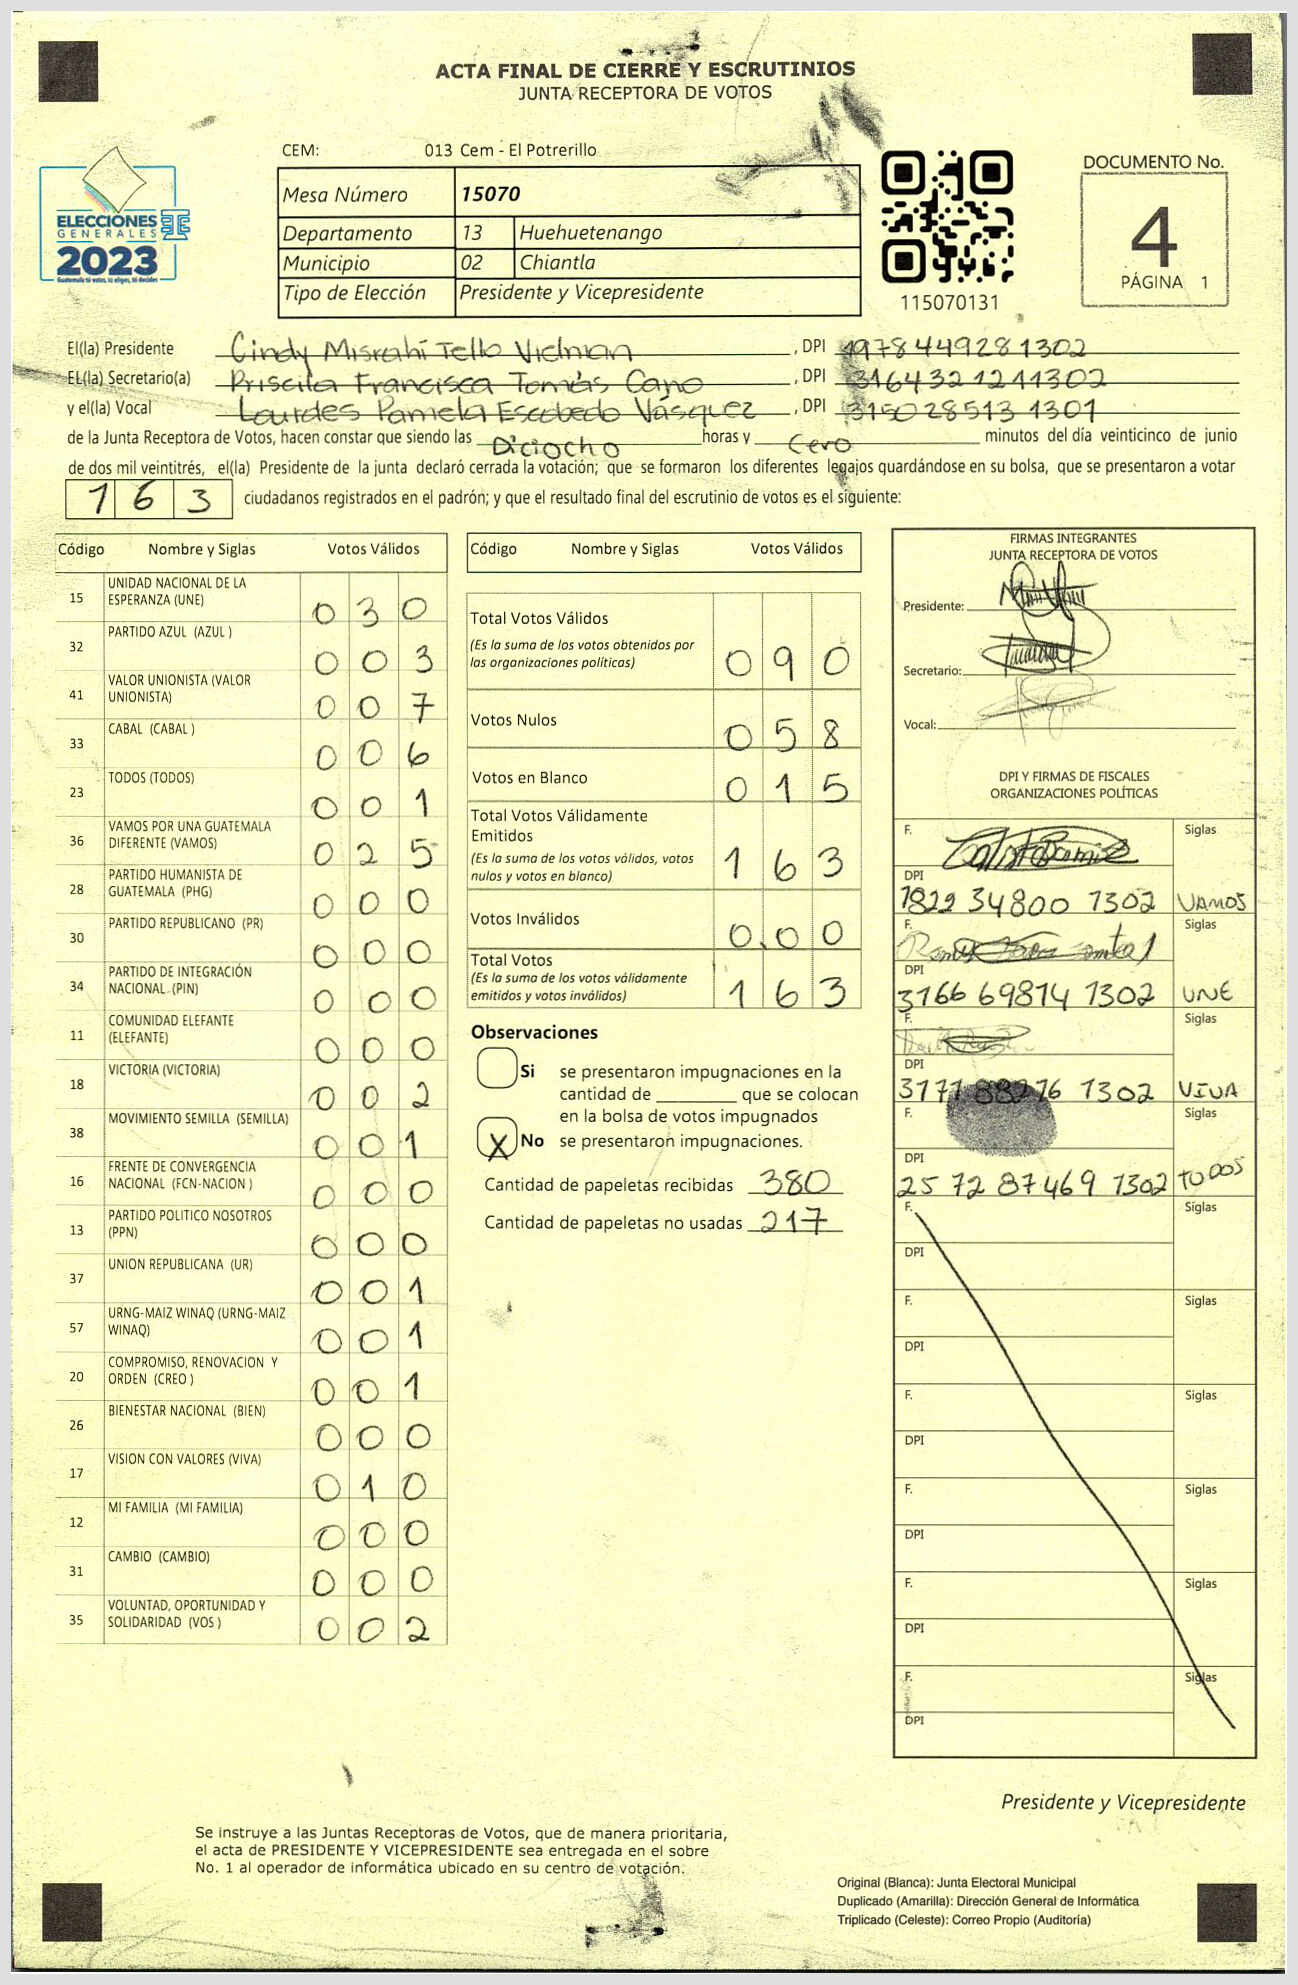 ACTA FINAL DE CIERRE Y ESCRUTINIOS
JUNTA RECEPTORA DE VOTOS
CEM: 013 Cem - El Potrerillo
Mesa Número 15070
Departamento 13 Huehuetenango
Municipio 02 Chiantla
Tipo de Elección Presidente y Vicepresidente
ELECCIONES
GENERALES
2023
115070131
DOCUMENTO No.
4
PÁGINA 1
El(la) Presidente Cindy Misrahí Tello Vielman, DPI 1978449281302
EL(la) Secretario(a) Priscila Francisca Tomás Cano, DPI 3164321211302
y el(la) Vocal Lourdes Pamela Escobedo Vásquez, DPI 3150285131301
de la Junta Receptora de Votos, hacen constar que siendo las Diciocho horas y Cero minutos del día veinticinco de junio
de dos mil veintitrés, el(la) Presidente de la junta declaró cerrada la votación; que se formaron los diferentes legajos guardándose en su bolsa, que se presentaron a votar
163 ciudadanos registrados en el padrón; y que el resultado final del escrutinio de votos es el siguiente:
Código Nombre y Siglas Votos Válidos
15 UNIDAD NACIONAL DE LA ESPERANZA (UNE) 0 3 0
32 PARTIDO AZUL (AZUL ) 0 0 3
41 VALOR UNIONISTA (VALOR UNIONISTA) 0 0 7
33 CABAL (CABAL ) 0 0 6
23 TODOS (TODOS) 0 0 1
36 VAMOS POR UNA GUATEMALA DIFERENTE (VAMOS) 0 2 5
28 PARTIDO HUMANISTA DE GUATEMALA (PHG) 0 0 0
30 PARTIDO REPUBLICANO (PR) 0 0 0
34 PARTIDO DE INTEGRACIÓN NACIONAL (PIN) 0 0 0
11 COMUNIDAD ELEFANTE (ELEFANTE) 0 0 0
18 VICTORIA (VICTORIA) 0 0 2
38 MOVIMIENTO SEMILLA (SEMILLA) 0 0 1
16 FRENTE DE CONVERGENCIA NACIONAL (FCN-NACION ) 0 0 0
13 PARTIDO POLITICO NOSOTROS (PPN) 0 0 0
37 UNION REPUBLICANA (UR) 0 0 1
57 URNG-MAIZ WINAQ (URNG-MAIZ WINAQ) 0 0 1
20 COMPROMISO, RENOVACION Y ORDEN (CREO ) 0 0 1
26 BIENESTAR NACIONAL (BIEN) 0 0 0
17 VISION CON VALORES (VIVA) 0 1 0
12 MI FAMILIA (MI FAMILIA) 0 0 0
31 CAMBIO (CAMBIO) 0 0 0
35 VOLUNTAD, OPORTUNIDAD Y SOLIDARIDAD (VOS ) 0 0 2
Código Nombre y Siglas Votos Válidos
Total Votos Válidos 0 9 0
(Es la suma de los votos obtenidos por
las organizaciones políticas)
Votos Nulos 0 5 8
Votos en Blanco 0 1 5
Total Votos Válidamente
Emitidos 1 6 3
(Es la suma de los votos válidos, votos
nulos y votos en blanco)
Votos Inválidos 0.00
Total Votos 1 6 3
(Es la suma de los votos válidamente
emitidos y votos inválidos)
Observaciones
Si se presentaron impugnaciones en la
cantidad de ________ que se colocan
en la bolsa de votos impugnados
X No se presentaron impugnaciones.
Cantidad de papeletas recibidas 380
Cantidad de papeletas no usadas 217
FIRMAS INTEGRANTES
JUNTA RECEPTORA DE VOTOS
Presidente:
Secretario:
Vocal:
DPI Y FIRMAS DE FISCALES
ORGANIZACIONES POLÍTICAS
F. Siglas
DPI
1822 34800 1302 VAMOS
F. Siglas
DPI
3166 69814 1302 UNE
F. Siglas
DPI
3171 88276 1302 VIVA
F. Siglas
DPI
25 72 87469 1302 TODOS
F. Siglas
DPI
F. Siglas
DPI
F. Siglas
DPI
F. Siglas
DPI
F. Siglas
DPI
F. Siglas
DPI
Presidente y Vicepresidente
Se instruye a las Juntas Receptoras de Votos, que de manera prioritaria,
el acta de PRESIDENTE Y VICEPRESIDENTE sea entregada en el sobre
No. 1 al operador de informática ubicado en su centro de votación.
Original (Blanca): Junta Electoral Municipal
Duplicado (Amarilla): Dirección General de Informática
Triplicado (Celeste): Correo Propio (Auditoría)